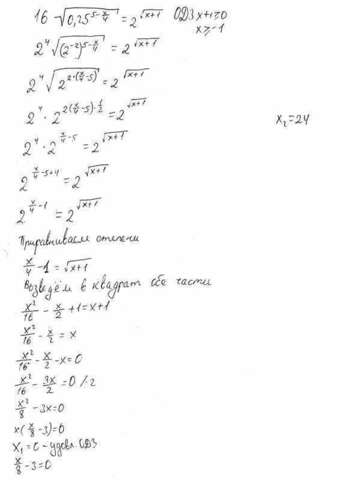 16 √(0,25^(5-x/4)) = 2^√(x+1) ОДЗ x+1≥0
x≥-1
2^4 √((2^(-2))^(5-x/4)) = 2^√(x+1)
2^4 √(2^(2·(x/4-5))) = 2^√(x+1)
2^4 · 2^(2(x/4-5)·1/2) = 2^√(x+1)
x₂=24
2^4 · 2^(x/4-5) = 2^√(x+1)
2^(x/4-5+4) = 2^√(x+1)
2^(x/4-1) = 2^√(x+1)
Приравниваем степени
x/4 -1 = √(x+1)
Возведём в квадрат обе части
x²/16 - x/2 +1 = x+1
x²/16 - x/2 = x
x²/16 - x/2 - x=0
x²/16 - 3x/2 = 0 /·2
x²/8 - 3x=0
x(x/8 -3)=0
x₁=0 - удовл. ОДЗ
x/8 -3=0